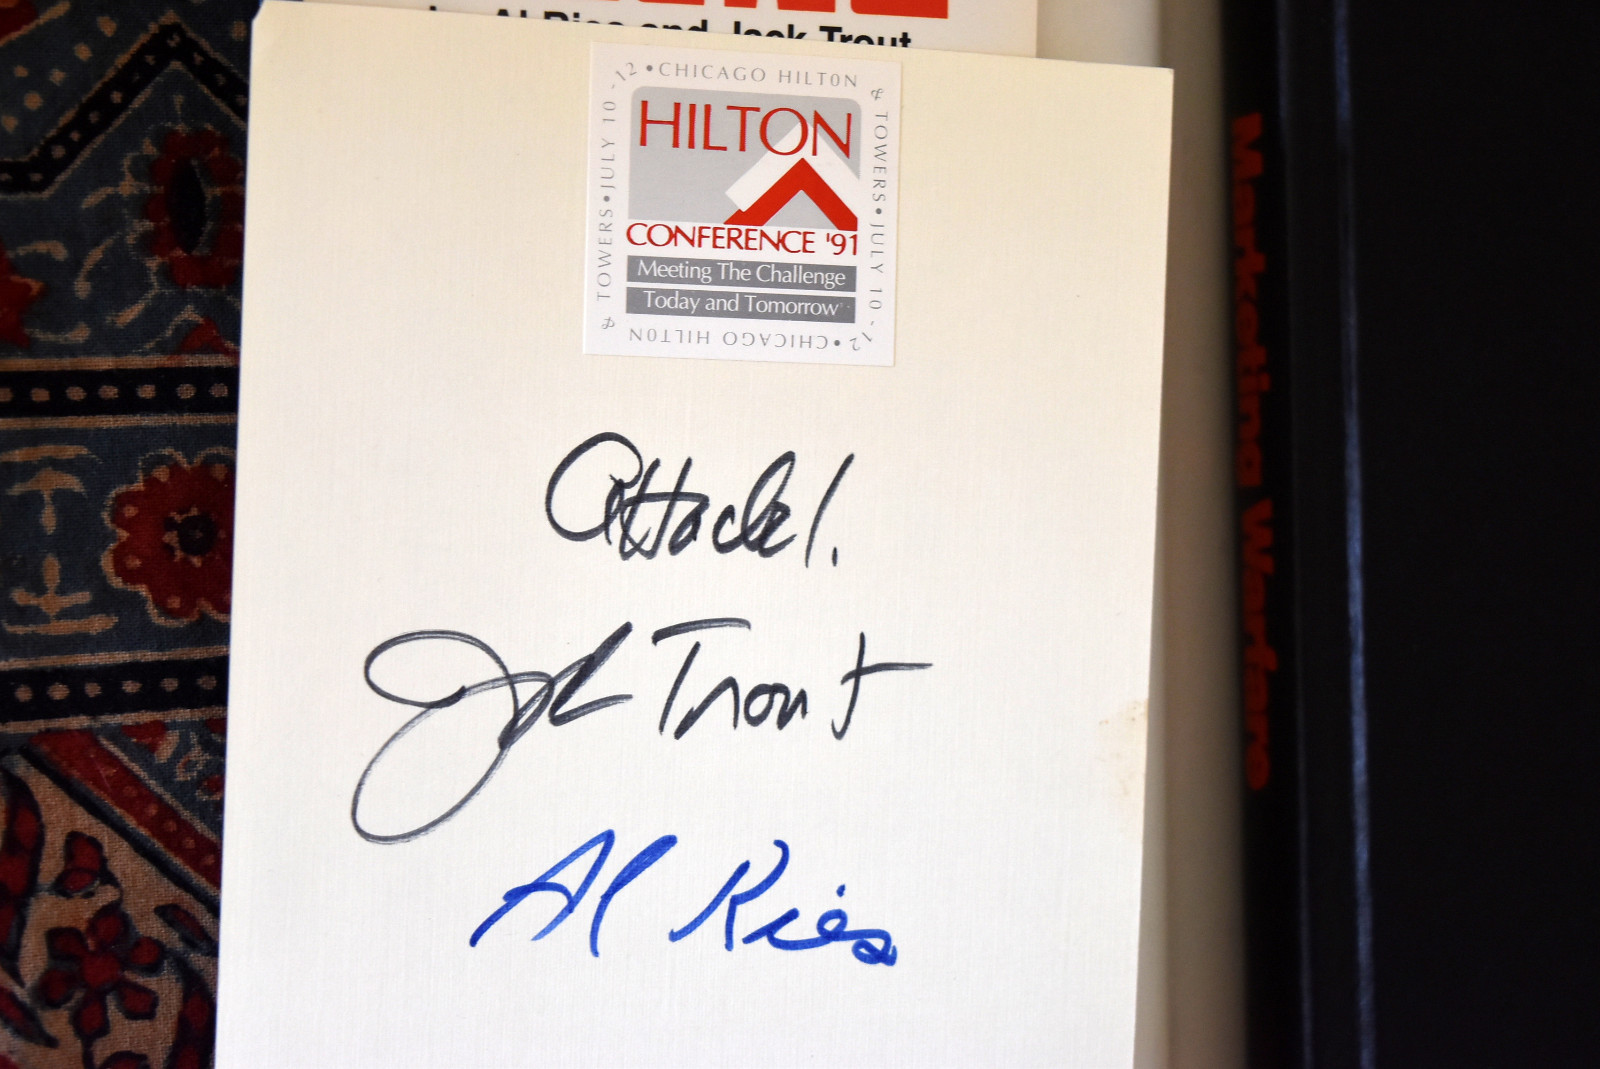 by Al Ries and Jack Trout
12 • CHICAGO HILTON
& TOWERS • JULY 10 - 12
• CHICAGO HILTON
& TOWERS • JULY 10 -
HILTON
CONFERENCE '91
Meeting The Challenge
Today and Tomorrow
Attack!
Jack Trout
Al Ries
Marketing Warfare